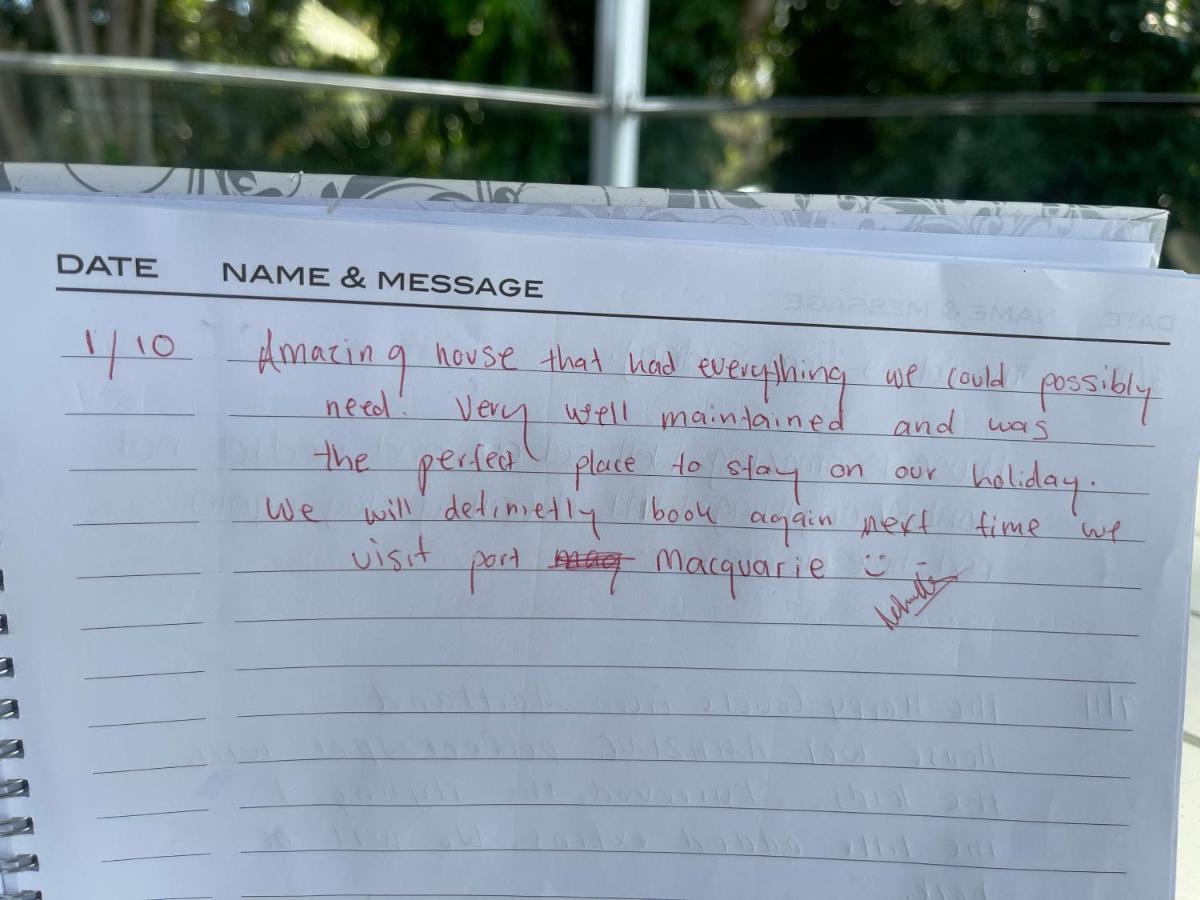 DATE NAME & MESSAGE
1/10 Amazing house that had everything we could possibly
need! Very well maintained and was
the perfect place to stay on our holiday.
We will definietly book again next time we
visit port maq Macquarie :)